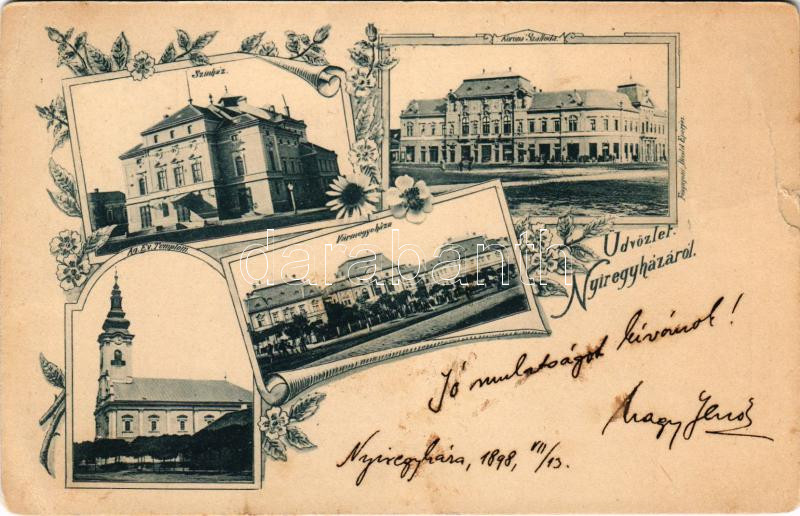 Szinház.
Korona Szálloda.
Vármegyeháza
Ág. Ev. Templom.
Üdvözlet
Nyíregyházáról.
darabanth
Jó mulatságot kívánok!
Nagy Jenő
Nyíregyháza, 1898, VII/13.